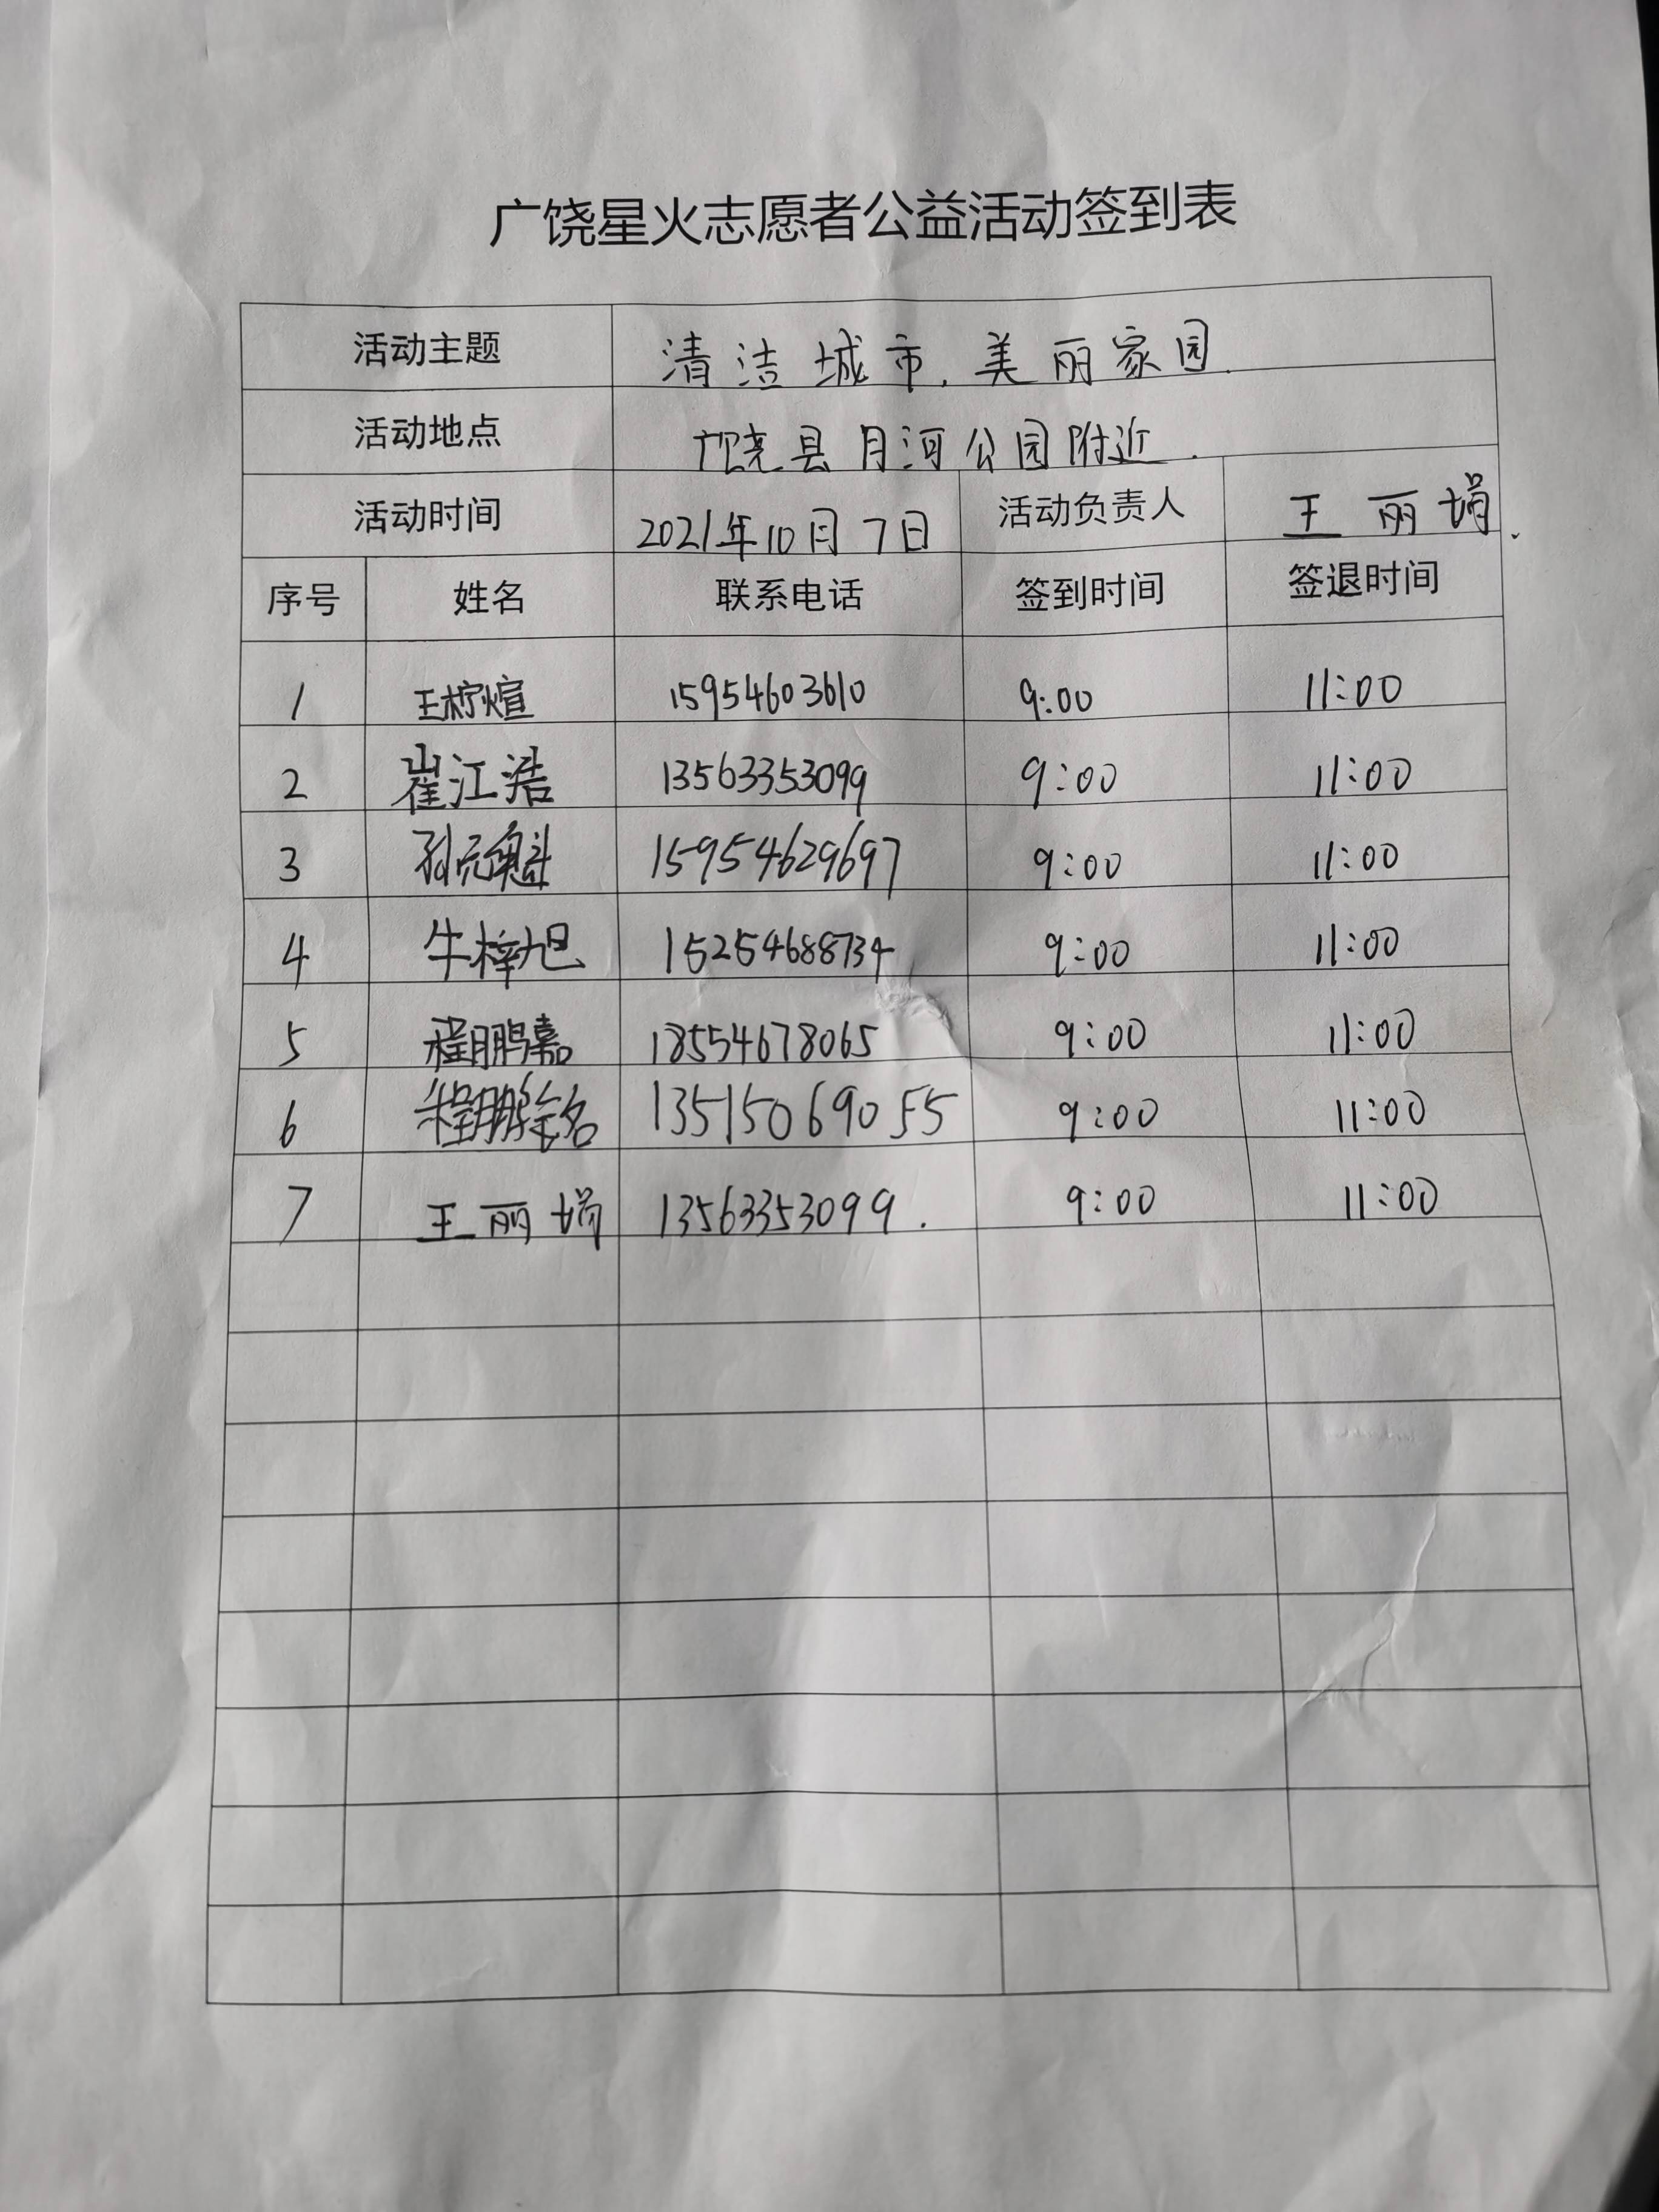 广饶星火志愿者公益活动签到表
活动主题 清洁城市,美丽家园.
活动地点 广饶县月河公园附近.
活动时间 2021年10月7日 活动负责人 王丽娟.
序号 姓名 联系电话 签到时间 签退时间
1 王柠煊 15954603610 9:00 11:00
2 崔江浩 13563353099 9:00 11:00
3 孙元魁 15954629697 9:00 11:00
4 牛梓旭 15254688734 9:00 11:00
5 程鹏嘉 18554678065 9:00 11:00
6 程鹏铭 13515069055 9:00 11:00
7 王丽娟 13563353099. 9:00 11:00